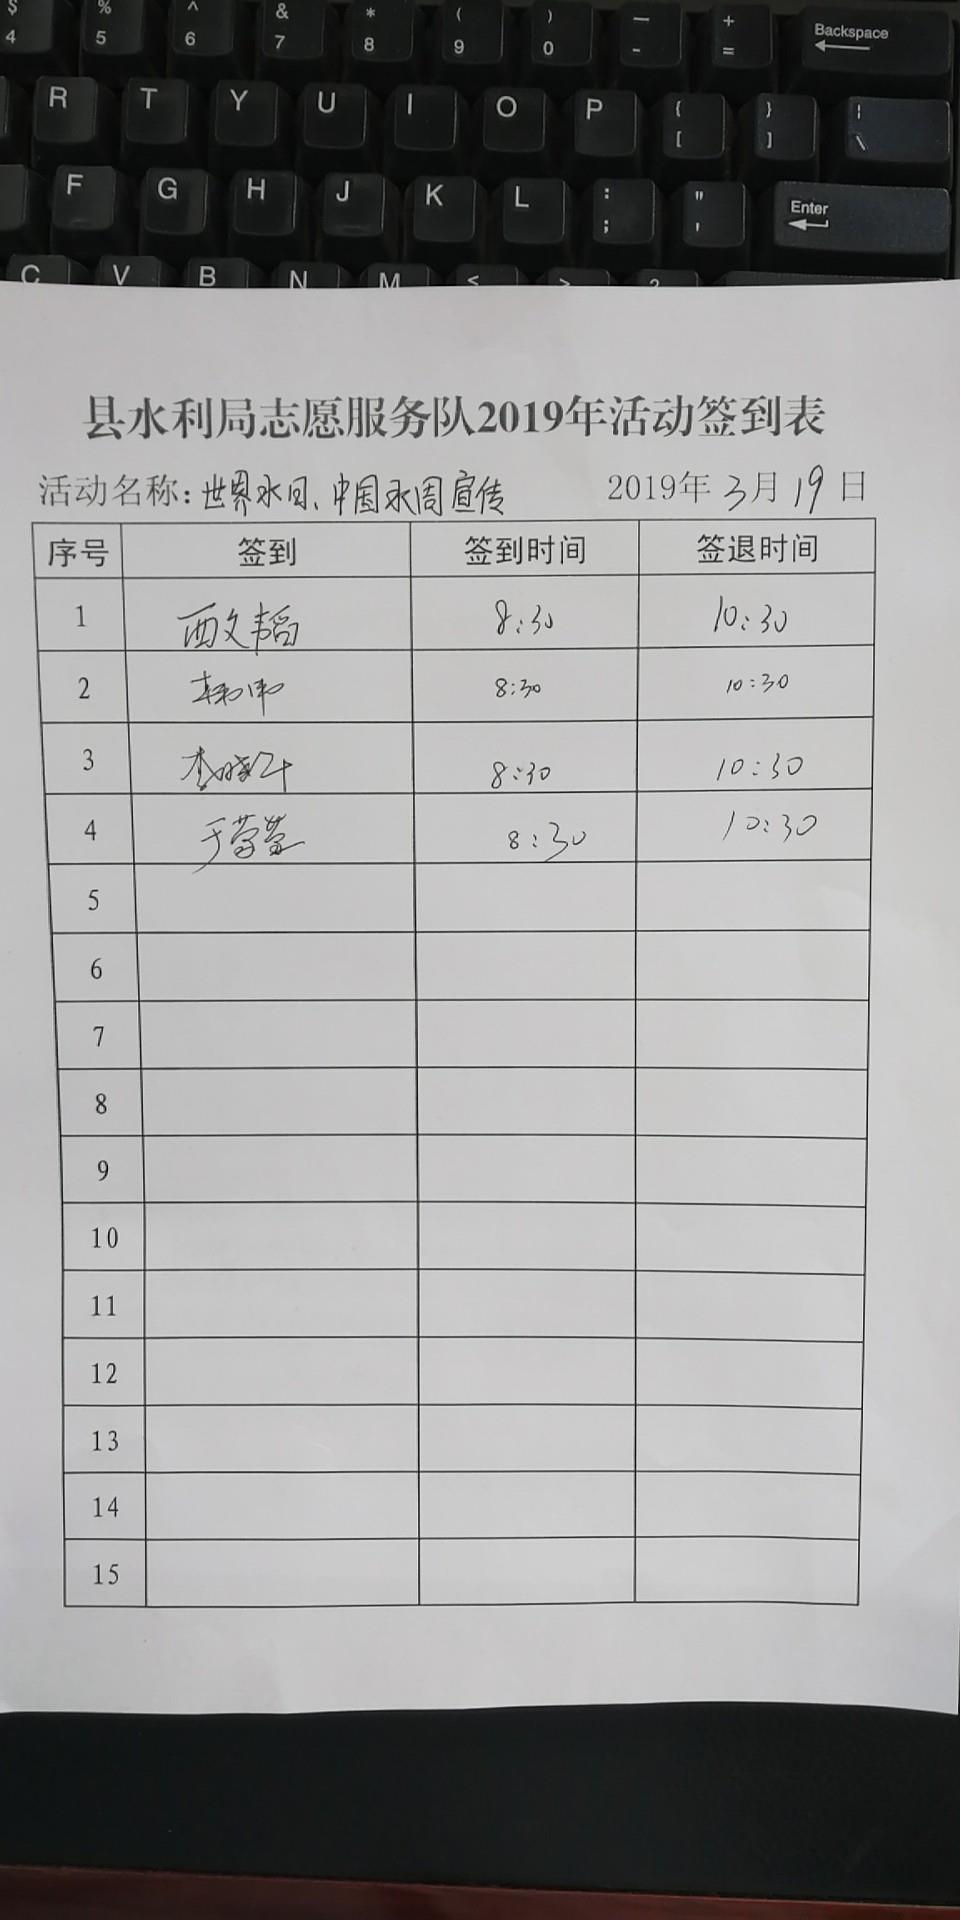 $ % ^ & * ( ) — + Backspace
4 5 6 7 8 9 0 - =
R T Y U I O P { } ¦
[ ] \
F G H J K L : " Enter
; '
C V B N M < > ?
县水利局志愿服务队2019年活动签到表
活动名称:世界水日、中国水周宣传 2019年3月19日
序号 签到 签到时间 签退时间
1 西文韬 8:30 10:30
2 8:30 10:30
3 8:30 10:30
4 于莹莹 8:30 10:30
5
6
7
8
9
10
11
12
13
14
15